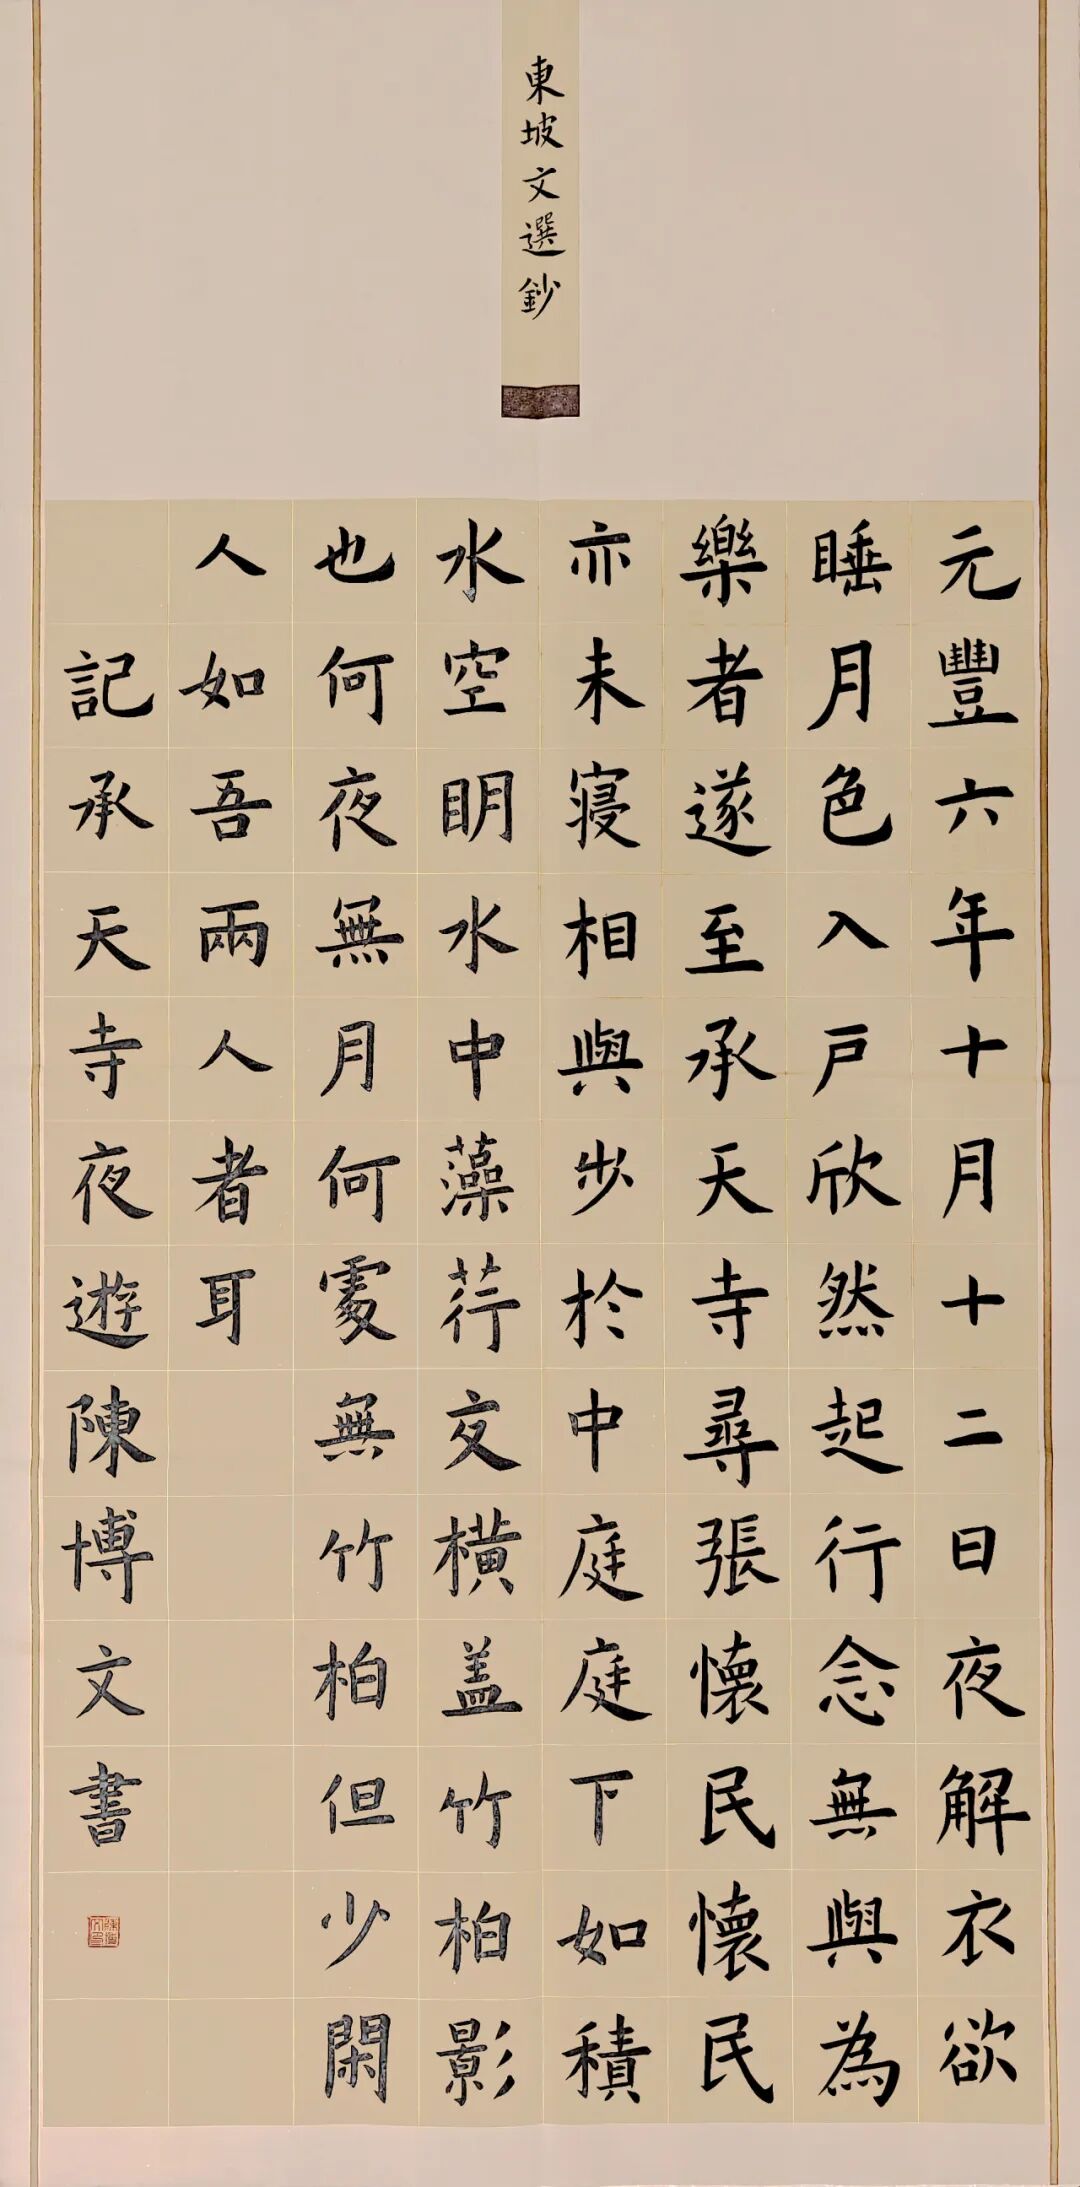 東坡文選鈔
元豐六年十月十二日夜解衣欲
睡月色入戶欣然起行念無與為
樂者遂至承天寺尋張懷民懷民
亦未寝相與步於中庭庭下如積
水空明水中藻荇交橫盖竹柏影
也何夜無月何處無竹柏但少閑
人如吾兩人者耳
記承天寺夜遊陳博文書